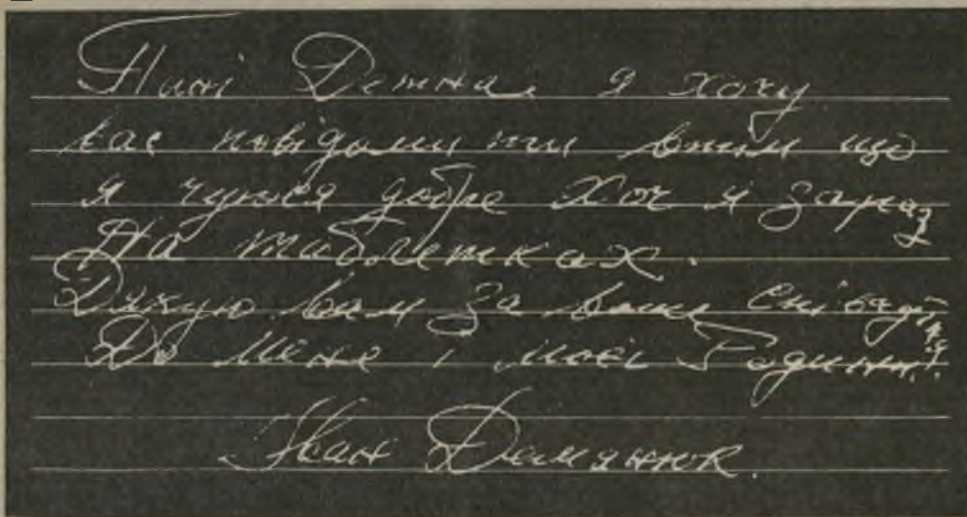 Пані Демна, я хочу
вас повідомити що
я чуюся добре Хоч я зараз
На таблетках.
Дякую вам за ваш
До мене і моєї Родини!
Іван Демянюк.